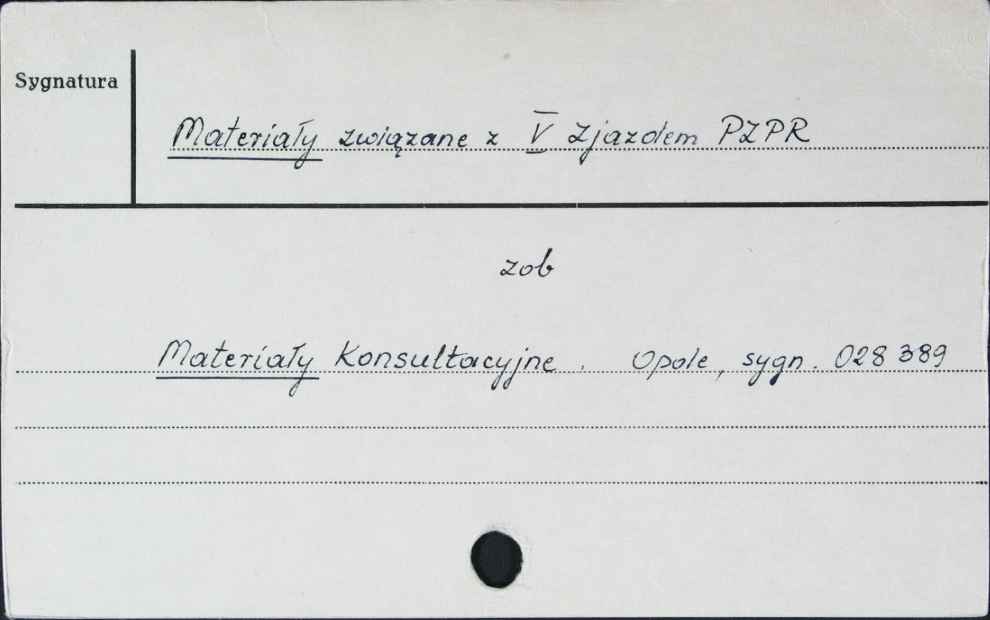 Sygnatura
Materiały związane z V Zjazdem PZPR
zob
Materiały Konsultacyjne. Opole, sygn. 028 389